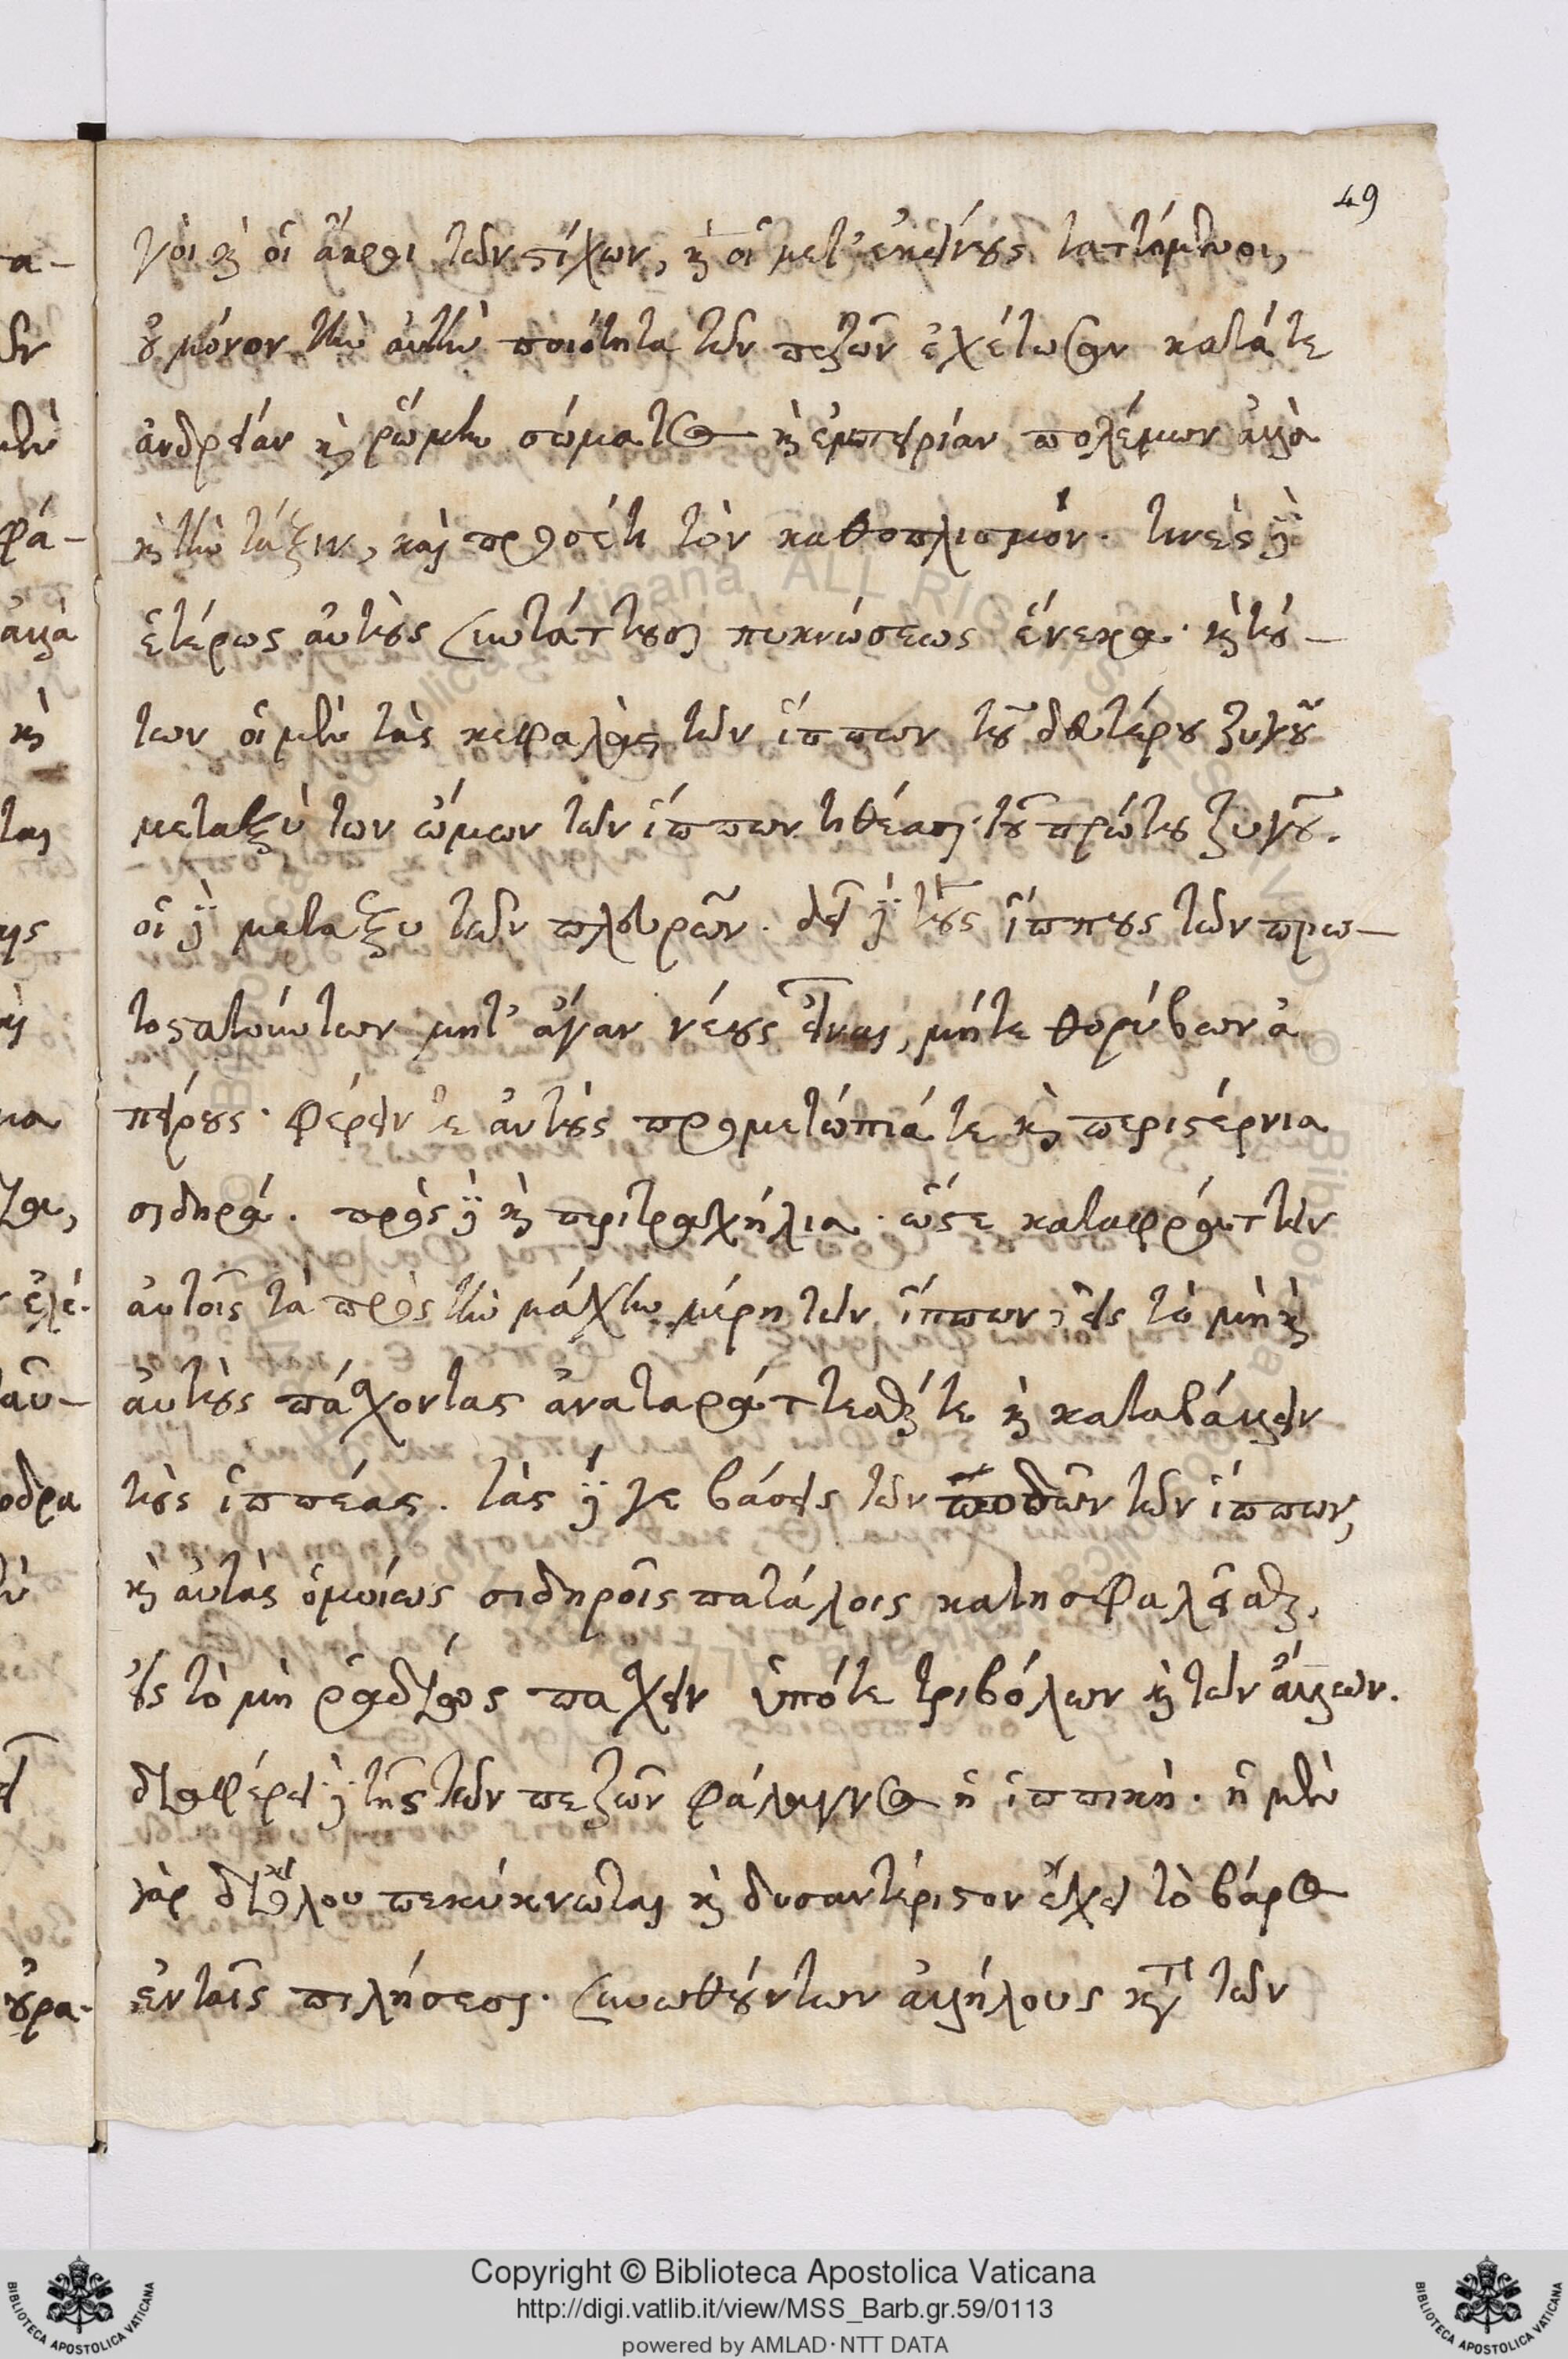 49
γοὶ καὶ οἱ ἄκροι τῶν στίχων, καὶ οἱ μετ' ἐκείνους ταττόμενοι,
οὐ μόνον τὴν αὐτὴν ποιότητα τῶν πεζῶν ἐχέτωσαν κατά τε
ἀνδρείαν καὶ ῥώμην σώματος καὶ ἐμπειρίαν πολέμων ἀλλὰ
καὶ τὴν τάξιν, καὶ προσέτι τὸν καθοπλισμόν. τινὲς δὲ
ἑτέρως αὐτοὺς συντάττουσι πυκνώσεως ἕνεκα. καὶ τού-
των οἱ μὲν τὰς κεφαλὰς τῶν ἵππων τοῦ δευτέρου ζυγοῦ
μεταξὺ των ὤμων τῶν ἵππων τιθέασι τοῦ πρώτου ζυγοῦ.
οἱ δὲ μεταξυ τῶν πλευρῶν. δεῖ δὲ τοὺς ἵππους τῶν πρω-
τοστατούντων μητ' ἄγαν νέους εἶναι, μήτε θορύβων ἀ
πείρους. φέρειν τε αὐτοὺς προμετώπιά τε καὶ περιστέρνια
σιδηρά. πρὸς δὲ καὶ περιτραχήλια. ὥστε καταφράττειν
αὐτοῖς τὰ πρὸς τὴν μάχην μέρη τῶν ἵππων, εἰς τὸ μὴ καὶ
αὐτοὺς πάσχοντας ἀναταράττεσθαί τε καὶ καταβάλλειν
τοὺς ἱππέας. τὰς δέ γε βάσεις τῶν ποδῶν τῶν ἵππων,
καὶ αὐτὰς ὁμοίως σιδηροῖς πατάλοις κατησφαλεῖσθαι,
εἰς τὸ μὴ ῥαδίως πασχειν ὑπό τε τριβόλων καὶ τῶν ἄλλων.
διαφέρει δὲ τῆς τῶν πεζῶν φάλαγγος ἡ ἱππικὴ. ἡ μὲν
γὰρ διόλου πεπύκνωται καὶ δυσαντέριστον ἔχει τὸ βάρος
ἐν ταῖς πιλήσεσι. συνωθούντων ἀλλήλους κατὰ τῶν
Copyright © Biblioteca Apostolica Vaticana
http://digi.vatlib.it/view/MSS_Barb.gr.59/0113
powered by AMLAD·NTT DATA